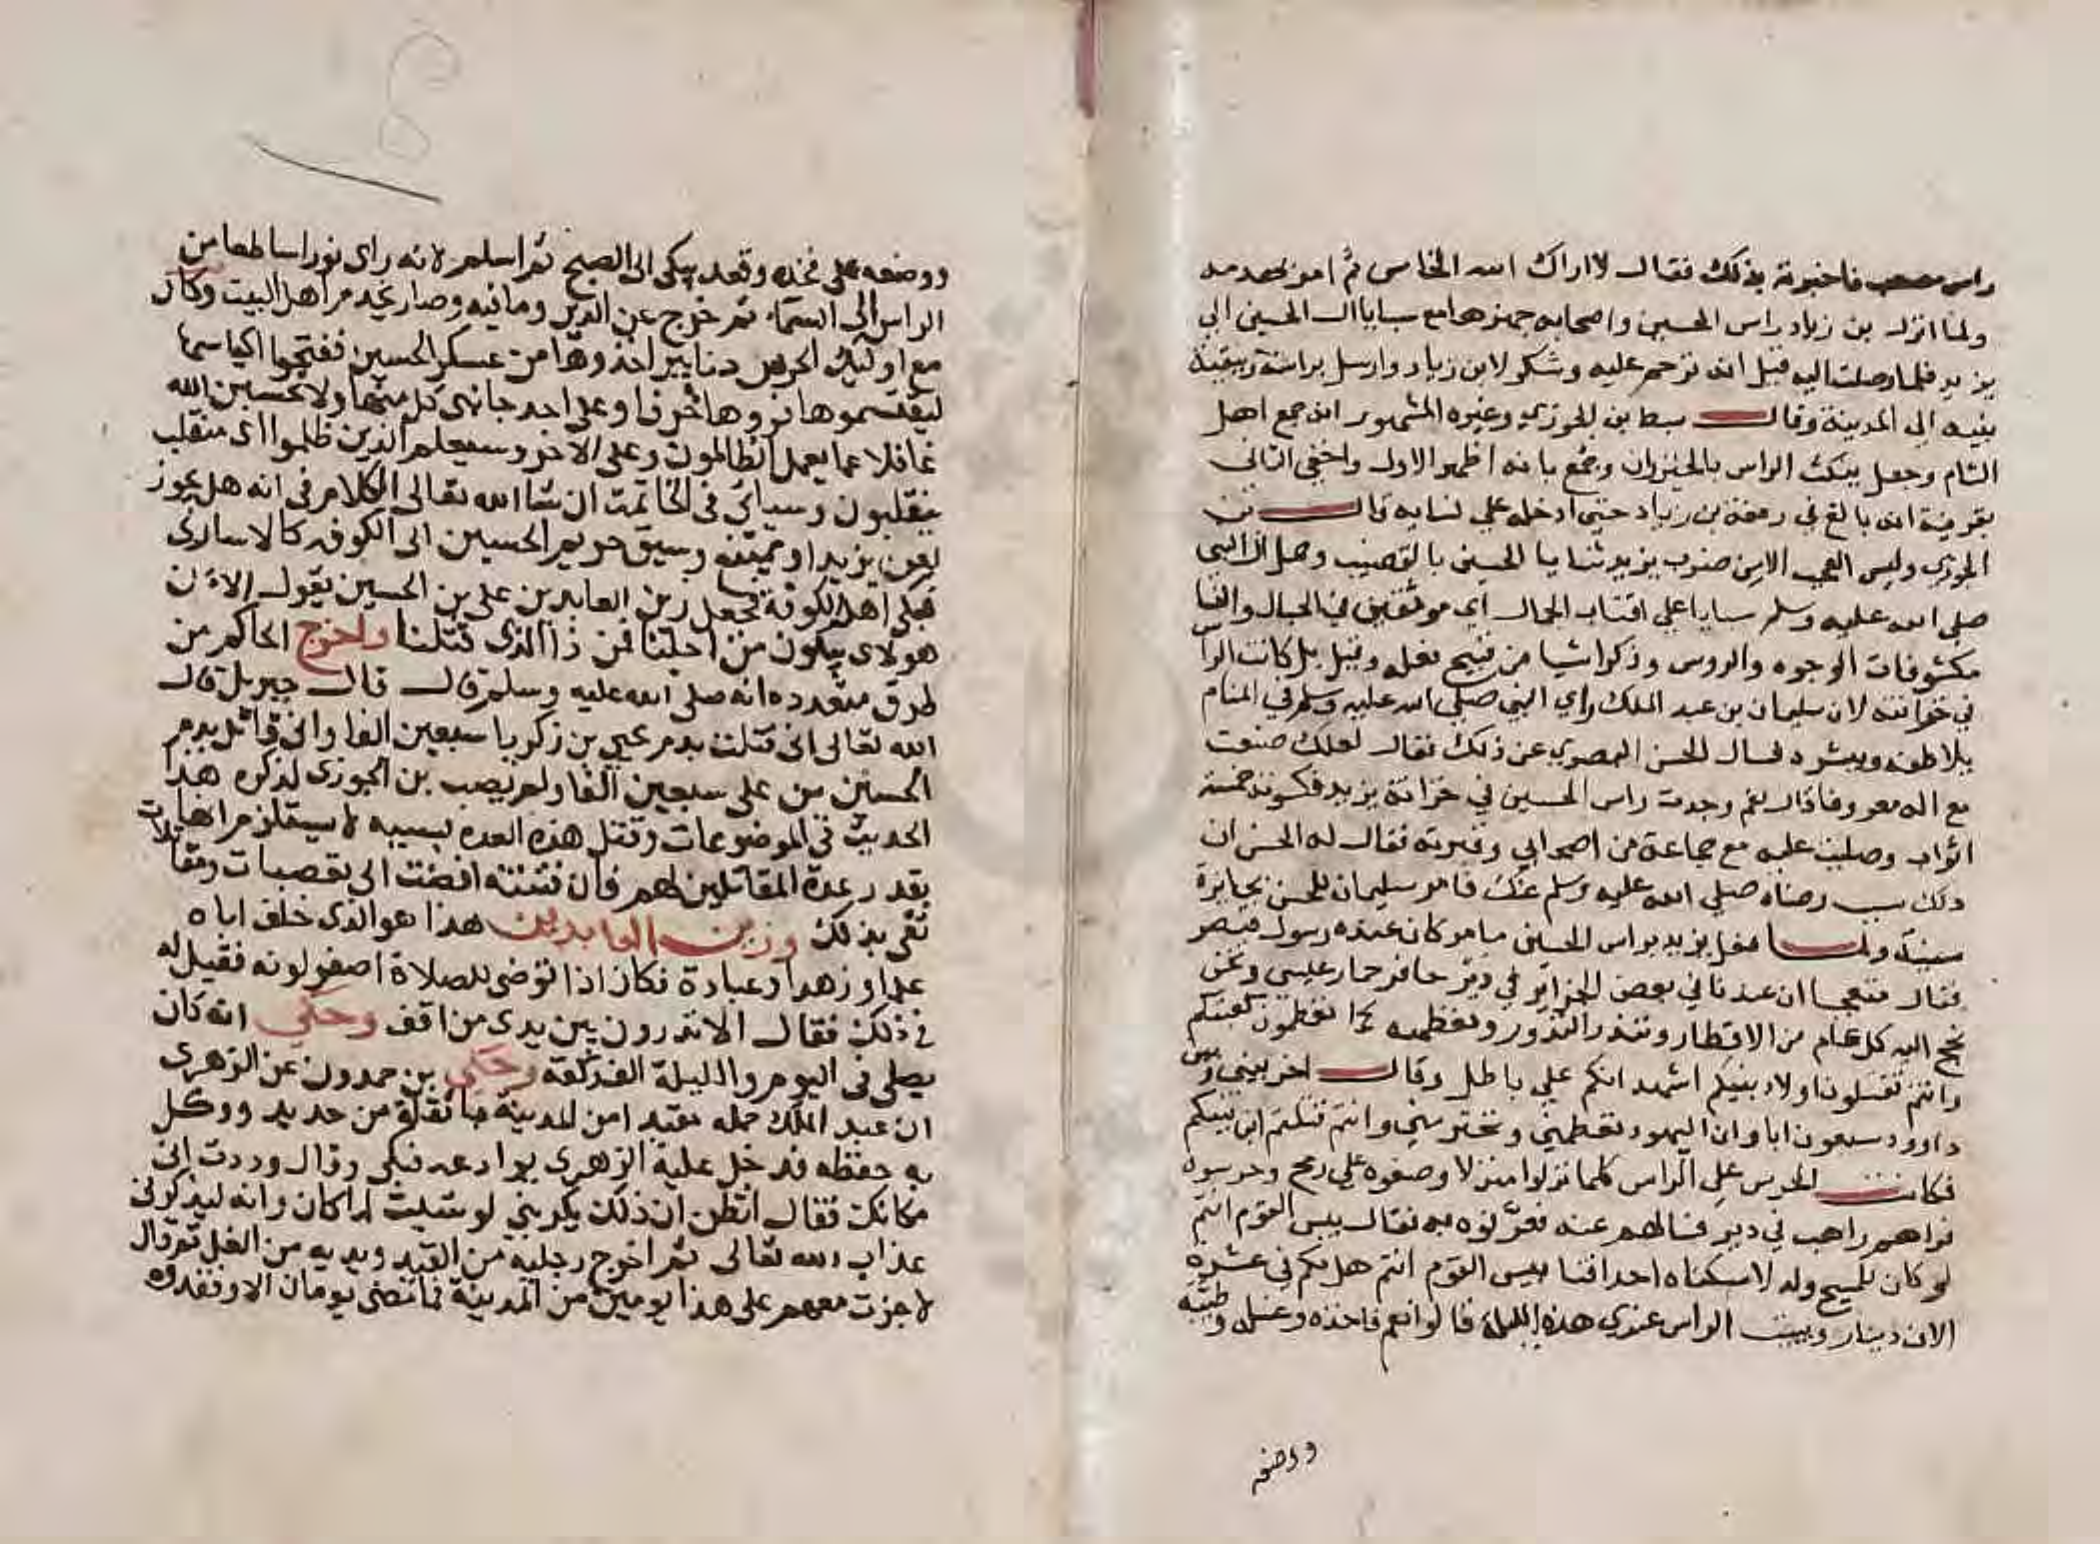 راس مصعب فاخبرته بذلك فقال لا اراك الله الخامس ثم امر بهدمه
ولما انزل بن زياد راس الحسين واصحابه جهزها مع سبايا ال الحسين الي
يزيد فلما وصلت اليه قيل انه ترحم عليه وشكر لابن زياد وارسل براسه وبقية
بنيه الى المدينة وقال سبط بن الجوزي وغيره المشهور انه جمع اهل
الشام وجعل ينكث الراس بالخيزران وجمع بانه اظهر الاول واخفى الثاني
بقرينة انه بالغ في رفعة بن زياد حتى ادخله علي نسايه قال بن
الجوزي وليس العجب الا من ضرب يزيد ثنايا الحسين بالقضيب وحمل ال النبي
صلى الله عليه وسلم سبايا علي اقتاب الجمال اي موثقين في الحبال والنسا
مكشوفات الوجوه والروس وذكر اشيا من قبيح فعله وقيل بل كانت الراس
في خزانته لان سليمان بن عبد الملك راي النبي صلى الله عليه وسلم في المنام
يلاطفه ويبشره فسال الحسن البصري عن ذلك فقال لعلك صنعت
مع اله معروفا قال نعم وجدت راس الحسين في خزانة يزيد فكسوته خمسة
اثواب وصليت عليه مع جماعة من اصحابي وقبرته فقال له الحسن ان
ذلك سبب رضاه صلى الله عليه وسلم عنك فامر سليمان للحسن بجايزة
سنية ولما فعل يزيد براس الحسين ما مر كان عنده رسول قيصر
فقال متعجبا ان عندنا في بعض الجزاير في دير حافر حمار عيسى ونحن
نحج اليه كل عام من الاقطار وننذر النذور ونعظمه كما تعظمون كعبتكم
وانتم تقتلون اولاد بنيكم اشهد انكم علي باطل وقال اخر بيني وبين
داوود سبعون ابا وان اليهود تعظمني وتحترمني وانتم قتلتم ابن نبيكم
فكانت الحرس علي الراس كلما نزلوا منزلا وضعوه علي رمح وحرسوه
فراهم راهب في دير فسالهم عنه فعرفوه به فقال بيس القوم انتم
لو كان للمسيح ولد لاسكناه احداقنا بيس القوم انتم هل لكم في عشرة
الاف دينار ويبيت الراس عندي هذه الليلة قالوا نعم فاخذه وغسله وطيبه
ووضعه
ووضعه على فخذه وقعد يبكى الى الصبح ثم اسلم لانه راى نورا ساطعا من
الراس الى السماء ثم خرج عن الدير وما فيه وصار يخدم اهل البيت وكان
مع اوليك الحرس دنانير اخذوها من عسكر الحسين ففتحوا اكياسها
ليقتسموها فراوها خزفا وعلى احد جانبى كل منها ولا تحسبن الله
غافلا عما يعمل الظالمون وعلى الاخر وسيعلم الذين ظلموا اى منقلب
ينقلبون وسياتى فى الخاتمة ان شا الله تعالى الكلام فى انه هل يجوز
لعن يزيد او يمتنع وسيق حريم الحسين الى الكوفه كالاسارى
فبكى اهل الكوفة فجعل زين العابدين على بن الحسين يقول الا ان
هولاى يبكون من اجلنا فمن ذا الذى قتلنا واخرج الحاكم من
طرق متعدده انه صلى الله عليه وسلم قال قال جبريل قال
الله تعالى انى قتلت بدم يحيى بن زكريا سبعين الفا وانى قاتل بدم
الحسين بن على سبعين الفا ولم يصب بن الجوزى لذكره هذا
الحديث فى الموضوعات وقتل هذه العدة بسببه لا يستلزم انها
بقدر عدة المقاتلين لهم فان فتنته افضت الى تعصبات ومقاتلات
تفى بذلك وزين العابدين هذا هو الذى خلف اباه
علما وزهدا وعبادة فكان اذا توضى للصلاة اصفر لونه فقيل له
فى ذلك فقال الا تدرون بين يدى من اقف وحكى انه كان
يصلى فى اليوم والليلة الف ركعة وحكى بن حمدون عن الزهرى
ان عبد الملك حمله مقيدا من المدينة باثقلة من حديد ووكل
به حفظه فدخل عليه الزهرى يوادعه فبكى وقال وددت انى
مكانك فقال اتظن ان ذلك يكربنى لو شيت لما كان وانه ليذكرنى
عذاب الله تعالى ثم اخرج رجليه من القيد ويديه من الغل ثم قال
لا جزت معهم على هذا يومين من المدينة فما مضى يومان الا وفقدوه